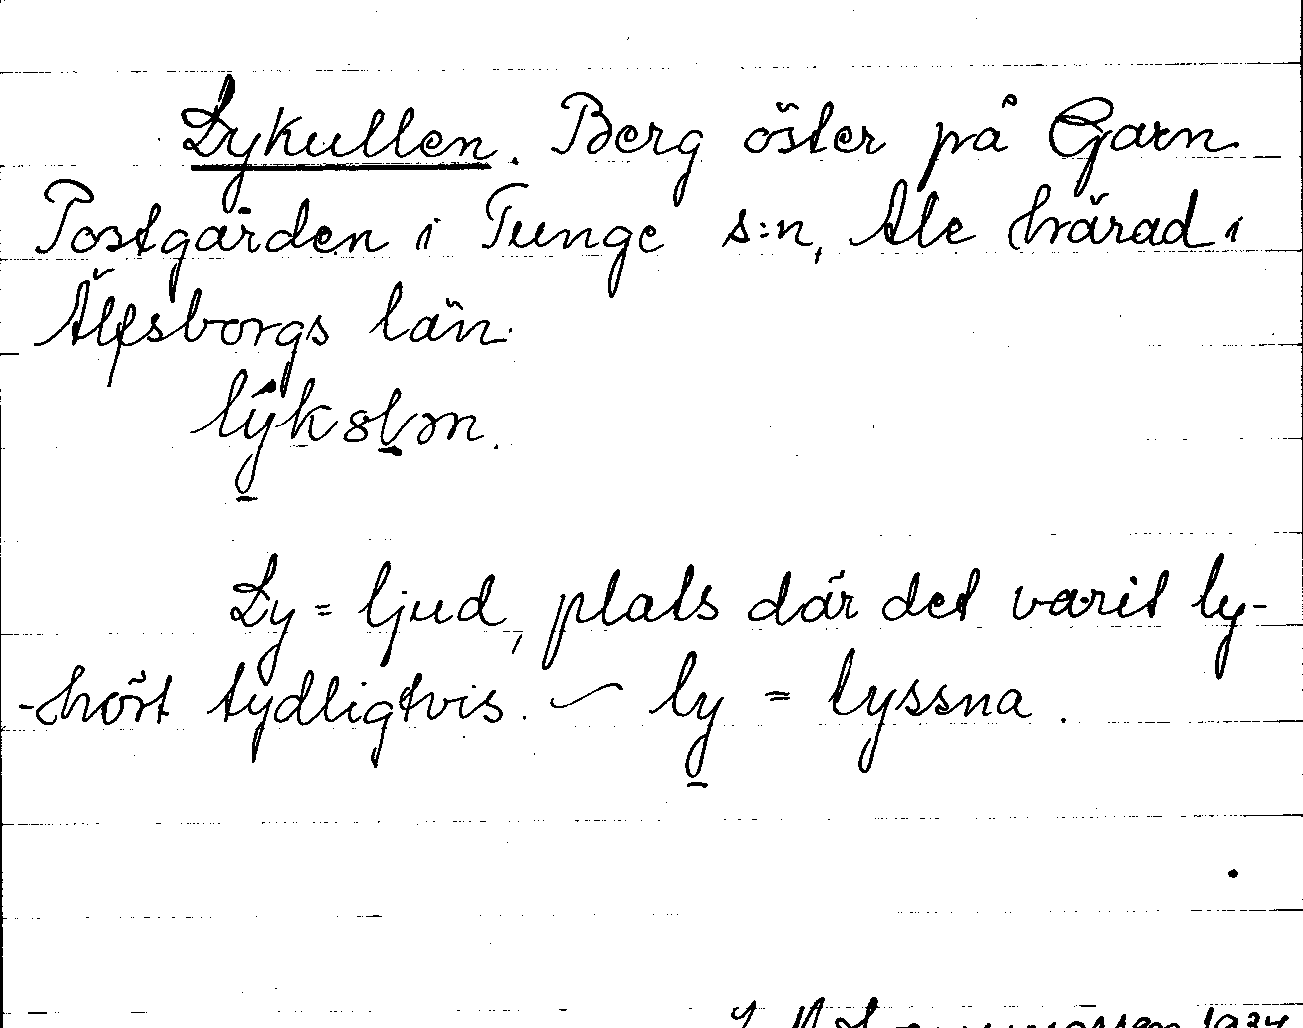 Lykullen. Berg öster på Garn
Postgården i Tunge s:n, Ale härad i
Älfsborgs län.
Ly = ljud, plats där det varit ly-
-hört tydligtvis. — ly = lyssna.
1934